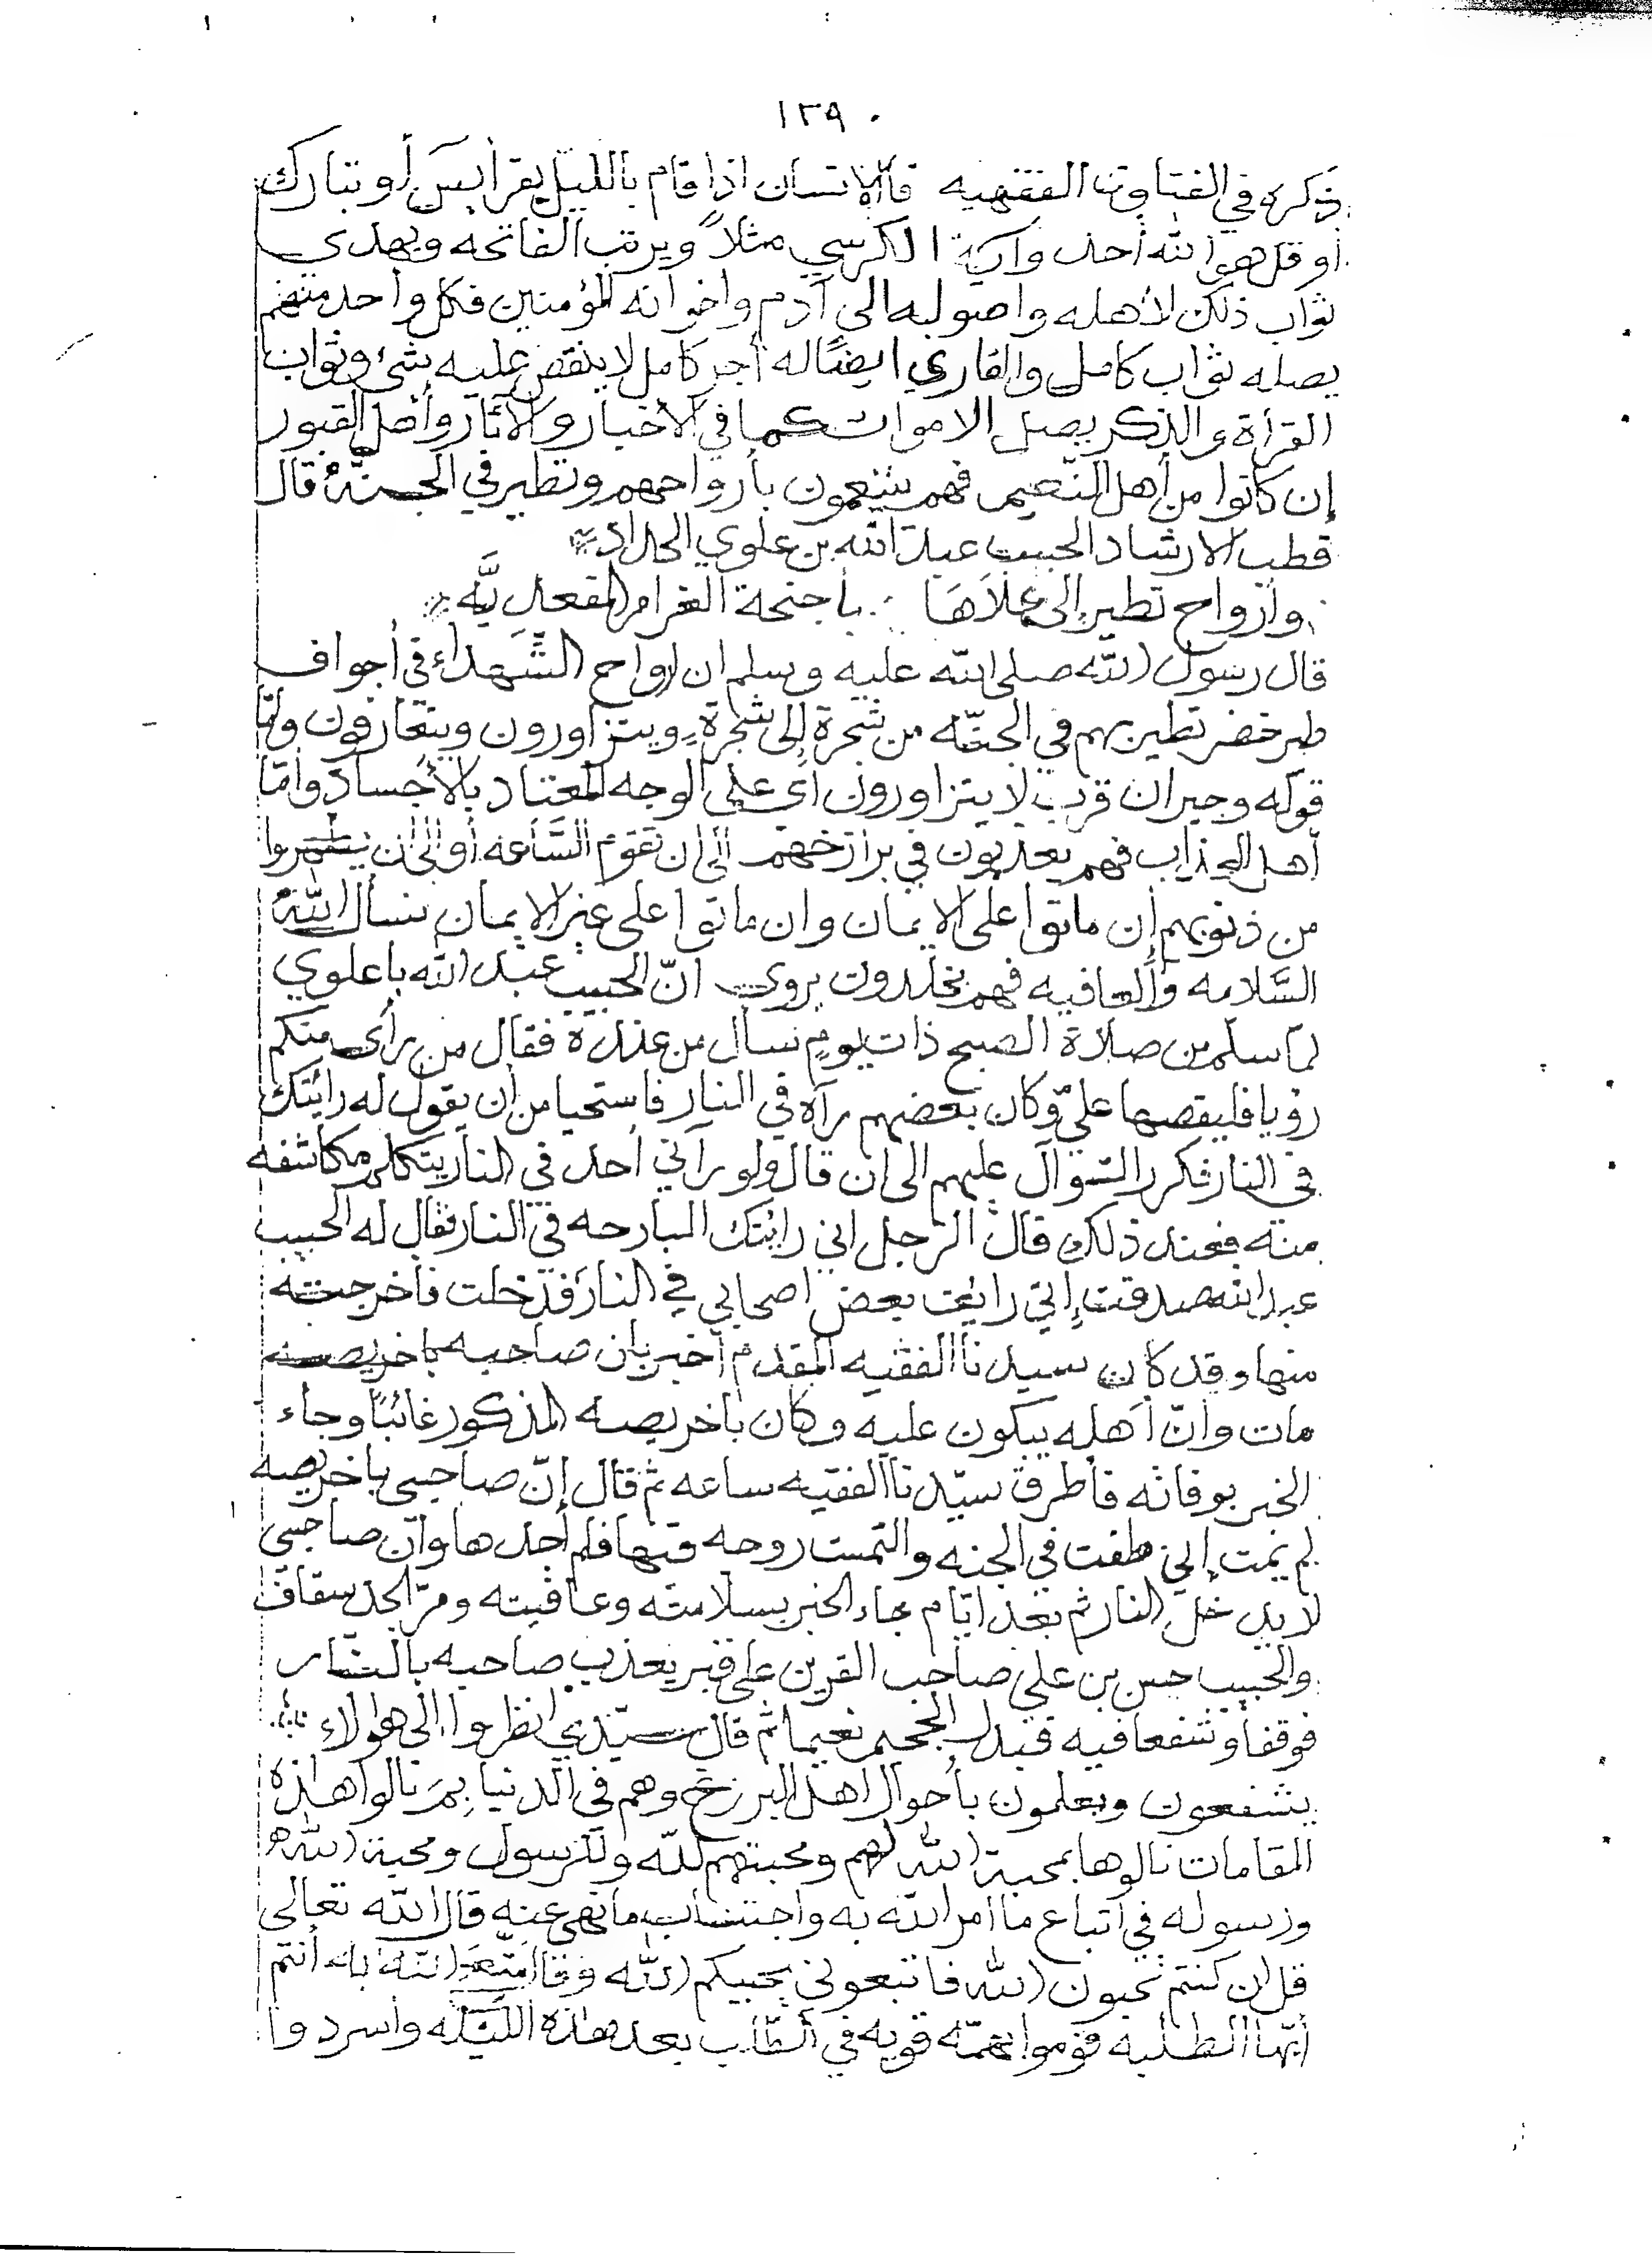 ١٣٩
ذكره في الفتاوى الفقهيه فالانسان اذا قام بالليل يقرأ يس أو تبارك
أو قل هو الله أحد وآية الكرسي مثلاً ويرتب الفاتحه ويهدى
ثواب ذلك لأهله واصوله الى آدم واخوانه المؤمنين فكل واحد منهم
يصله ثواب كامل والقاري ايضًا له أجر كامل لا ينقص عليه شئ وثواب
القرأة والذكر يصل الاموات كما في الأخبار والآثار وأهل القبور
إن كانوا من أهل النّعيم فهم يتنعمون بأرواحهم وتطير في الجنّة قال
قطب الارشاد الحبيب عبد الله بن علوي الحداد
وأرواح تطير إلى علاَهَا ∴ بأجنحة الغرام المقعديَّه
قال رسول الله صلى الله عليه وسلم ان ارواح الشُّهداء في أجواف
طير خضر تطير بهم في الجنّه من شجرة إلى شجرةٍ ويتزاورون ويتعارفون وأمّا
قوله وجيران قرب لا يتزاورون أى على الوجه المعتاد بالأجساد وأمّا
أهل العذاب فهم يعذبون في برازخهم الى ان تقوم السَّاعه أو إلى ان يتطهروا
من ذنوبهم إن ماتوا على الايمان وان ماتوا على غير الايمان نسأل الله
السَّلامه والعافيه فهم يخلدون يروى انّ الحبيب عبد الله باعلوي
لما سلم من صلاة الصبح ذات يومٍ نسأل من عنده فقال من رأى منكم
رؤيا فليقصها عليّ وكان بعضهم رآه في النار فاستحيا من أن يقول له رائيتك
في النار فكرر السّوآل عليهم الى ان قال ولو رآني أحد في النار يتكلم مكاشفه
منه فعند ذلك قال الرجل اني رائيتك البارحه في النار فقال له الحبيب
عبد الله صدقت إنّي رائيت بعض اصحابي في النار فدخلت فأخرجته
منها وقد كان سيدنا الفقيه المقدم أخبر بان صاحبه باخريصه
مات وانّ أهله يبكون عليه وكان باخريصه المذكور غائبًا وجاء
الخبر بوفاته فأطرق سيّدنا الفقيه ساعه ثم قال إنّ صاحبي باخريصه
لم يمت إني طفت في الجنه والتمست روحه فيها فلم أجدها وان صاحبي
لا يدخل النار ثم بعد ايّام جاء الخبر بسلامته وعافيته ومرّ الجد سقاف
والحبيب حسن بن علي صاحب القرين على قبر يعذب صاحبه بالنّار
فوقفا وتشفعا فيه فبدل الجحيم نعيما ثم قال سيّدي انظروا إلى هؤلاء
يشفعون ويعلمون بأحوال اهل البرزخ وهم في الدنيا بِمَ نالوا هذه
المقامات نالوها بمحبة الله لهم ومحبتهم لله وللرسول ومحبة الله
ورسوله في اتباع ما امر الله به واجتناب ما نهى عنه قال الله تعالى
قل ان كنتم تحبون الله فاتبعوني يحببكم الله أنتم
أيّها الطلبه قوموا بهمّه قويه في الطّلب بعد هذه اللّيله وأسردوا